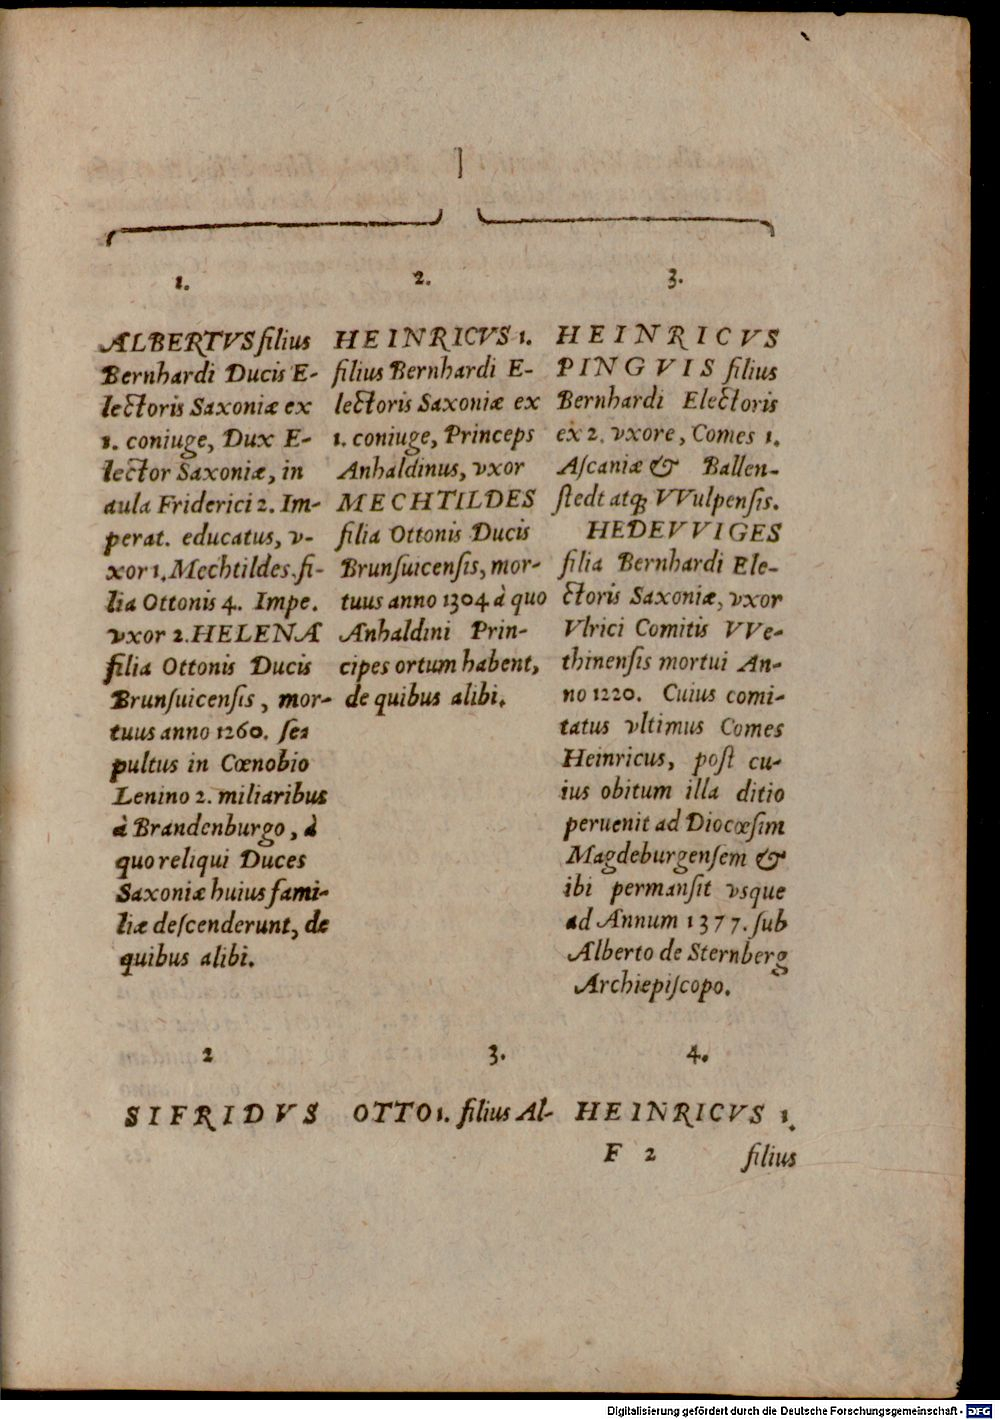 1.
ALBERTVS filius
Bernhardi Ducis E-
lectoris Saxoniæ ex
1. coniuge, Dux E-
lector Saxoniæ, in
aula Friderici 2. Im-
perat. educatus, v-
xor 1. Mechtildes fi-
lia Ottonis 4. Impe.
vxor 2. HELENA
filia Ottonis Ducis
Brunſuicenſis, mor-
tuus anno 1260. ſea
pultus in Cœnobio
Lenino 2. miliaribus
à Brandenburgo, à
quo reliqui Duces
Saxoniæ huius fami-
liæ deſcenderunt, de
quibus alibi.
2.
HEINRICVS 1.
filius Bernhardi E-
lectoris Saxoniæ ex
1. coniuge, Princeps
Anhaldinus, vxor
MECHTILDES
filia Ottonis Ducis
Brunſuicenſis, mor-
tuus anno 1304 à quo
Anhaldini Prin-
cipes ortum habent,
de quibus alibi.
3.
HEINRICVS
PINGVIS filius
Bernhardi Electoris
ex 2. vxore, Comes 1.
Aſcaniæ & Ballen-
ſtedt atq; VVulpenſis.
HEDEVVIGES
filia Bernhardi Ele-
ctoris Saxoniæ, vxor
Vlrici Comitis VVe-
thinenſis mortui An-
no 1220. Cuius comi-
tatus vltimus Comes
Heinricus, poſt cu-
ius obitum illa ditio
peruenit ad Diocœſim
Magdeburgenſem &
ibi permanſit vsque
ad Annum 1377. ſub
Alberto de Sternberg
Archiepiſcopo.
2
SIFRIDVS
3.
OTTO 1. filius Al-
4.
HEINRICVS 1.
F 2
filius
Digitalisierung gefördert durch die Deutsche Forschungsgemeinschaft - DFG